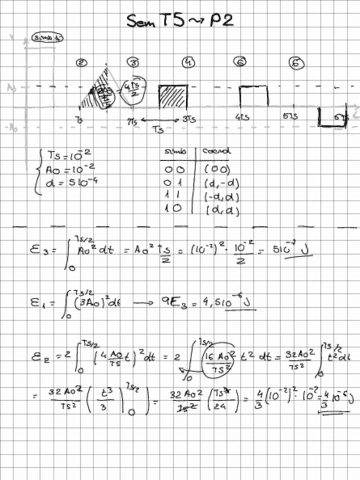 Sem TS ~> P2
simb 1
② ③ ④ ⑤ ⑥
A0
4TS/2
-A0
0 TS 3TS 4TS 5TS 6TS
TS
{ TS = 10^-2
A0 = 10^-2
d = 5 10^-4
simb coord
00 (00)
01 (d,-d)
11 (-d,d)
10 (d,d)
E3 = ∫_0^{TS/2} A0² dt = A0² TS/2 = (10^-2)² · 10^-2/2 = 5 10^-7 J
E1 = ∫_0^{TS/2} (3A0)² dt → 9E3 = 4,5 10^-6 J
E2 = 2 ∫_0^{TS/2} (4 A0/TS t)² dt = 2 ∫_0^{TS/2} (16 A0²/TS²) t² dt = 32A0²/TS² ∫_0^{TS/2} t² dt
= 32A0²/TS² (t³/3 )_0^{TS/2} = 32A0²/TS² (TS³/24) = 4/3 (10^-2)² · 10^-2 = 4/3 10^-6 J